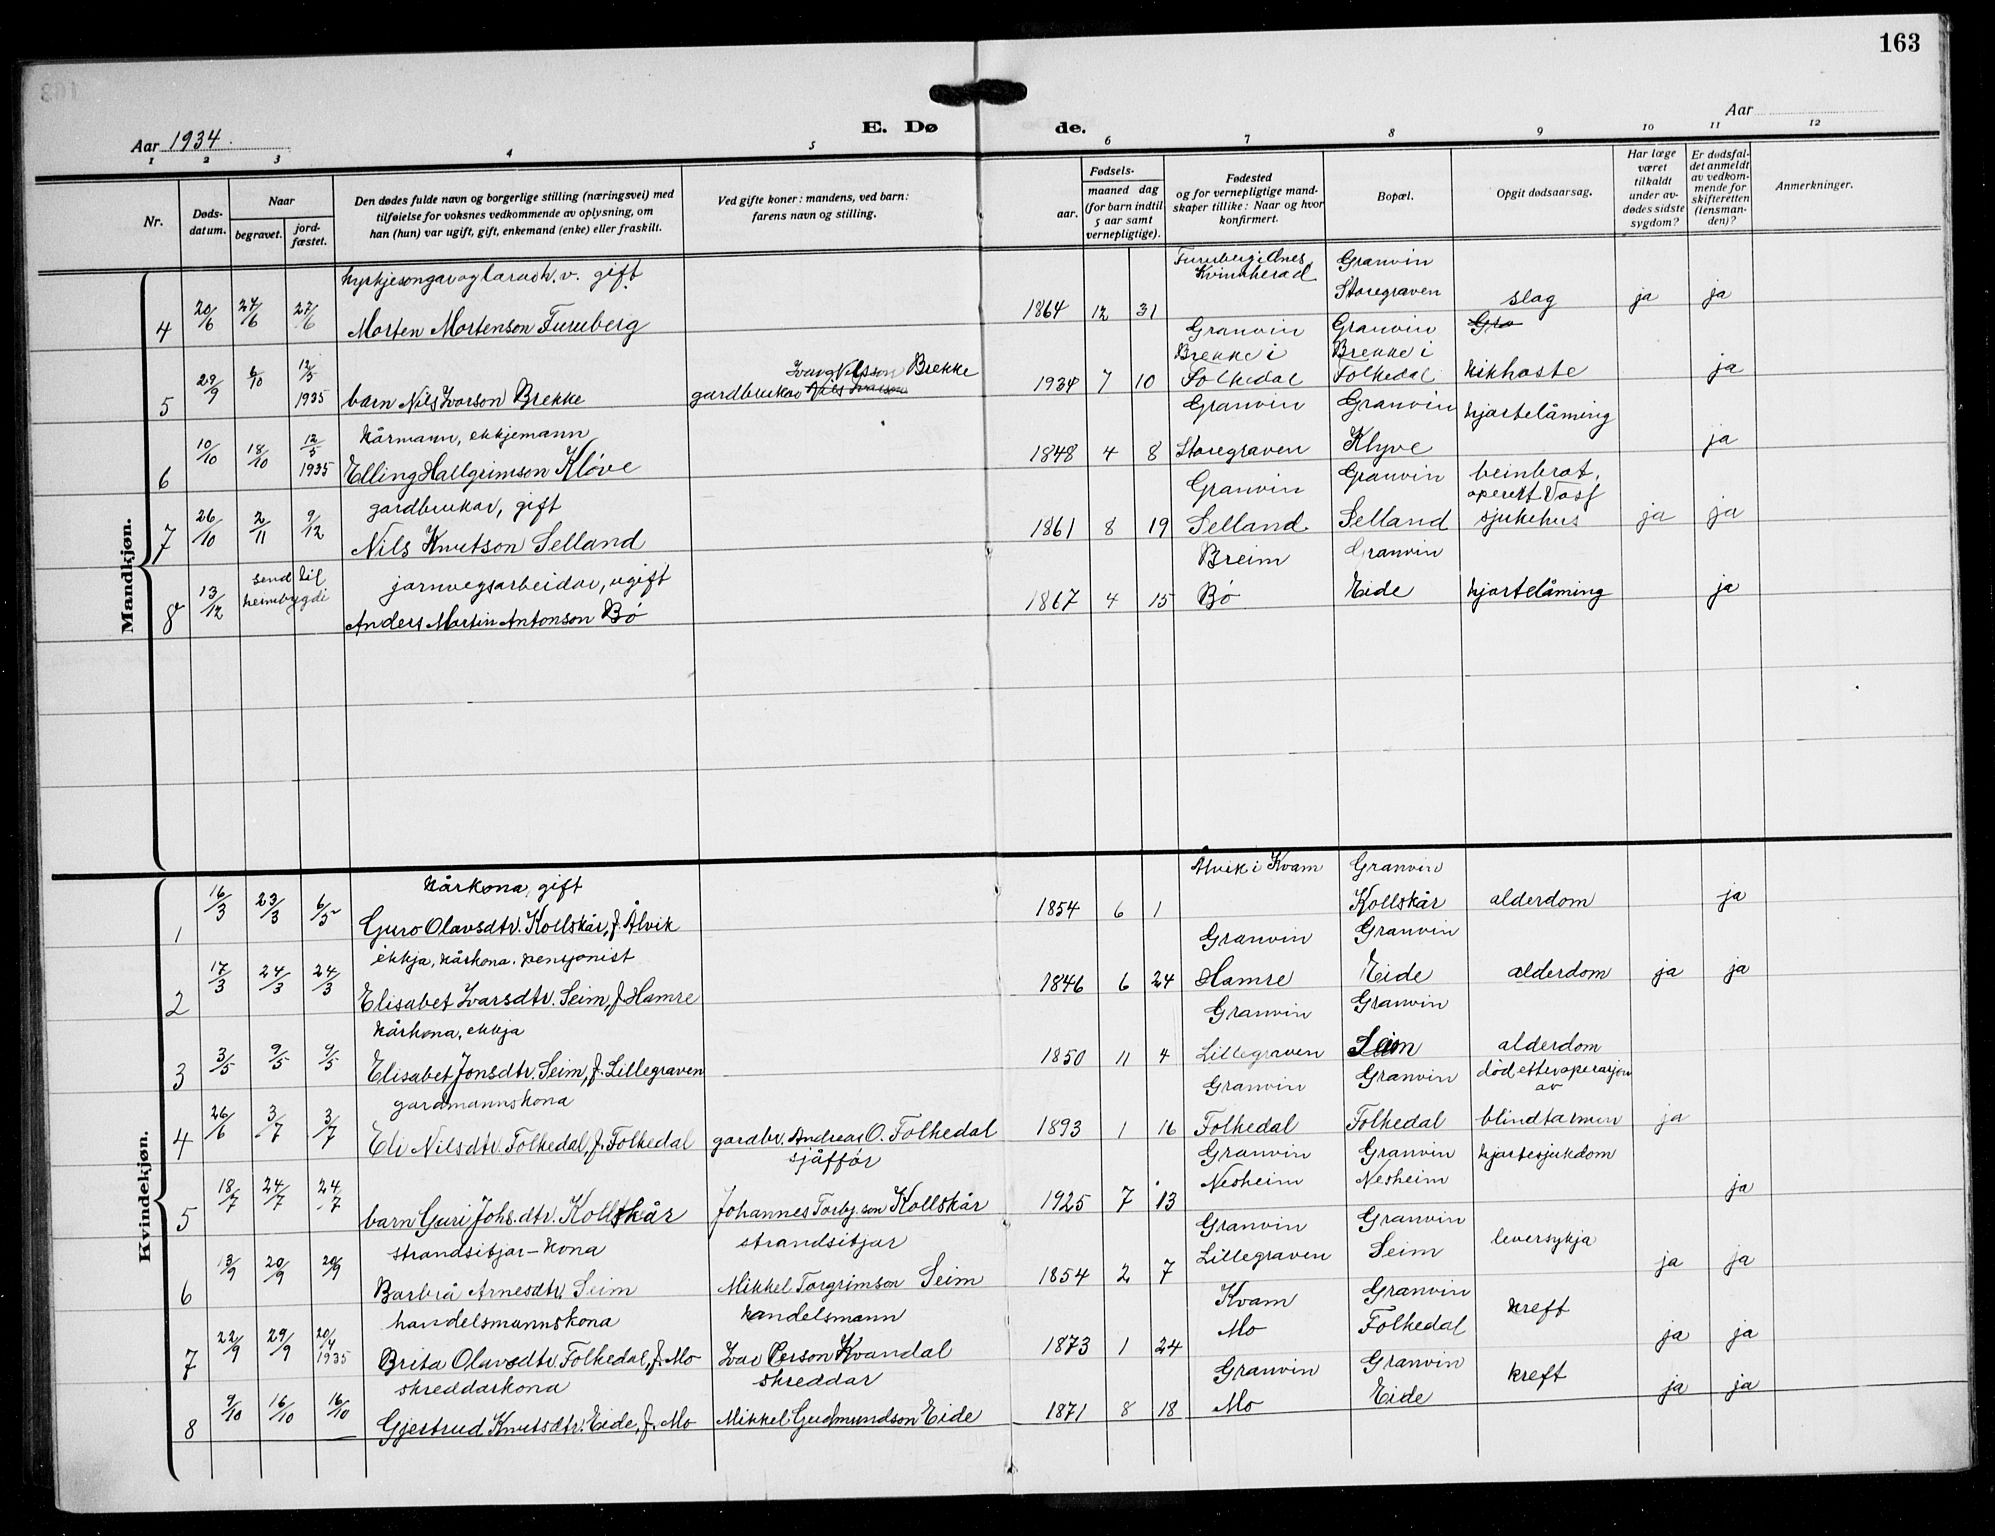 163
Aar 1934.
E. Dø
de.
Aar
1 2 3 4 5 6 7 8 9 10 11 12
Nr.
Døds-
datum.
Naar
begravet.
jord-
fæstet.
Den dødes fulde navn og borgerlige stilling (næringsvei) med
tilføielse for voksnes vedkommende av oplysning, om
han (hun) var ugift, gift, enkemand (enke) eller fraskilt.
Ved gifte koner: mandens, ved barn:
farens navn og stilling.
Fødsels-
aar.
maaned dag
(for barn indtil
5 aar samt
vernepligtige).
Fødested
og for vernepligtige mand-
skaper tillike: Naar og hvor
konfirmert.
Bopæl.
Opgit dødsaarsag.
Har læge
været
tilkaldt
under av-
dødes sidste
sygdom?
Er dødsfal-
det anmeldt
av vedkom-
mende for
skifteretten
(lensman-
den)?
Anmerkninger.
Mandkjøn.
kyrkjesongar og lararh. v. gift Furuberg i Ænes Granvin
Kvinnherad Storegraven
4 20/6 27/6 27/6 Morten Mortenson Furuberg 1864 12 31 slag ja ja
Granvin Granvin Gra
Ivar Nilsson Brekke Brekke i Brekke i
5 29/9 6/10 12/5 1935 barn Nils Ivarson Brekke gardbrukar Nils Ivarson 1934 7 10 Folkedal Folkedal kikhoste ja
kårmann, ekkjemann Granvin Granvin hjartelåming
6 10/10 18/10 12/5 1935 Elling Hallgrimson Kløve 1848 4 8 Storegraven Klyve ja
gardbrukar, gift Granvin Granvin beinbrot,
operert Voss
7 26/10 2/11 9/12 Nils Knutson Selland 1861 8 19 Selland Selland sjukehus ja ja
jarnvegsarbeidar, ugift Breim Granvin
8 13/12 send til heimbygdi Anders Martin Antonson Bø 1867 4 15 Bø Eide hjartelåming ja
Kvindekjøn.
kårkona, gift Ålvik i Kvam Granvin
1 16/3 23/3 6/5 Guro Olavsdtr. Kollskår, f. Ålvik 1854 6 1 Kollskår alderdom ja
ekkja, kårkona. pensjonist Granvin Granvin
2 17/3 24/3 24/3 Elisabet Ivarsdtr. Seim, f. Hamre 1846 6 24 Hamre Eide alderdom ja ja
kårkona, ekkja Granvin Granvin
3 3/5 9/5 9/5 Elisabet Jonsdtr. Seim, f. Lillegraven 1850 11 4 Lillegraven Seim alderdom
gardmannskona Granvin Granvin død etter operasjon
av
4 26/6 3/7 3/7 Eli Nilsdtr. Folkedal, f. Folkedal gardbr. Andreas O. Folkedal 1893 1 16 Folkedal Folkedal blindtarmen ja
sjåffør Granvin Granvin hjartesjukdom
5 18/7 24/7 24/7 barn Guri Johs.dtr. Kollskår Johannes Torbj.son Kollskår 1925 7 13 Nesheim Nesheim ja
strandsitjar-kona strandsitjar Granvin Granvin
6 13/9 20/9 20/9 Barbrå Arnesdtr. Seim Mikkel Torgrimson Seim 1854 2 7 Lillegraven Seim leversykja ja ja
handelsmannskona handelsmann Kvam Granvin
7 22/9 29/9 20/4 1935 Brita Olavsdtr. Folkedal, f. Mo Ivar Person Kvandal 1873 1 24 Mo Folkedal kreft ja ja
skreddarkona skreddar Granvin Granvin
8 9/10 16/10 16/10 Gjertrud Knutsdtr. Eide, f. Mo Mikkel Gudmundson Eide 1871 8 18 Mo Eide kreft ja ja